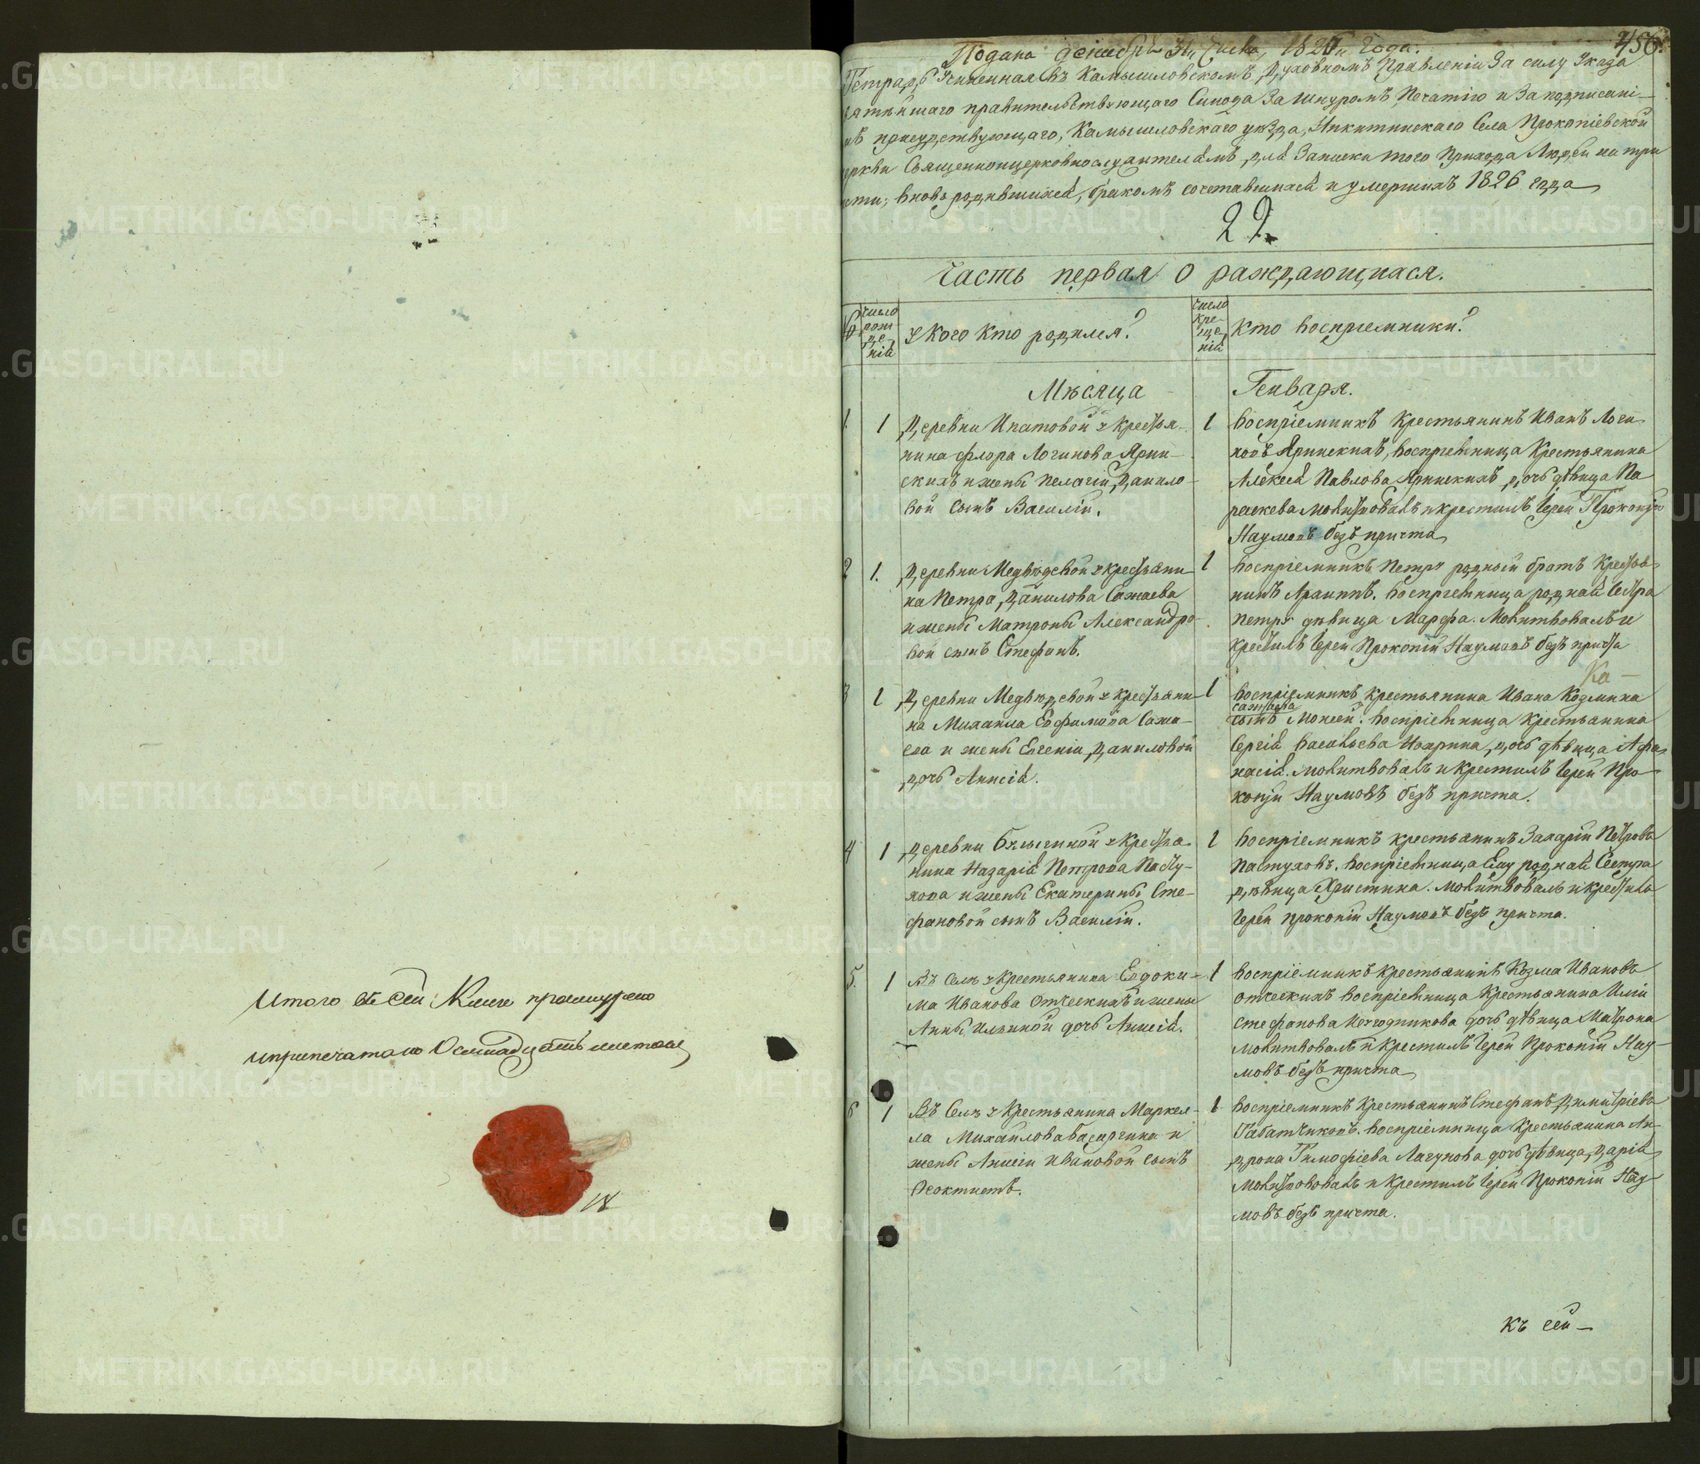 Итого въ сей Книге прошнуровано
и припечатано Осемнадцать листовъ
18
Подана декабря 31 числа 1826 года.
456.
Тетрадь Учиненная въ Камышловскомъ Духовномъ Правленіи За силу Указа
правительствующаго Синода За шнуромъ Печатію и За подписані-
присудствующаго, Камышловскаго уезда, Никитинскаго Села Прокопіевской
Священноцерковнослужителямъ, для Записки того Прихода Людей на три
вновь родившихся, бракомъ сочетавшихся и умершихъ 1826 года
29.
Часть первая о раждающихся.
число рожденій
У Кого Кто родился?
число крещеній
Кто восприемники?
Мѣсяца
Генваря.
1 1 Деревни Ипатовой у Крестья-
нина Флора Логинова Ярин-
скихъ и жены Пелагіи Данило-
вой сынъ Василій.
1 Воспріемникъ Крестьянинъ Иванъ Логи-
новъ Яринскихъ, воспріемница Крестьянина
Алексея Павлова Яринскихъ дочь дѣвица Па-
раскева молитвовалъ и крестилъ Іерей Прокопій
Наумовъ безъ причта
2 1. Деревни Медвѣдевой у крестьяни-
на Петра Данилова Сажаева
и жены Матроны Александро-
вой сынъ Стефанъ.
1 воспріемникъ Петру родный братъ Крестья-
нинъ Архипъ. воспріемница родная Сестра
Петру дѣвица Марфа. Молитвовалъ и
крестилъ Іерей Прокопій Наумовъ безъ причта
3 1 Деревни Медвѣдевой у крестьяни-
на Михаила Ефимова Сажа-
ева и жены Евгеніи Даниловой
дочь Анисія.
1 воспріемникъ крестьянина Ивана Козмина
сажаева
сынъ Моисей. воспріемница крестьянина
Сергія Васильева Ипарина дочь дѣвица Афа-
насія. Молитвовалъ и крестилъ Іерей Про-
копій Наумовъ безъ причта.
4 1 Деревни Бѣлыгиной у Крестья-
нина Назарія Петрова Пасту-
хова и жены Екатерины Сте-
фановой сынъ Василій.
1 воспріемникъ крестьянинъ Захарій Петровъ
Пастуховъ. воспріемница Ему родная Сестра
дѣвица Христина. молитвовалъ и крестилъ
Іерей прокопій Наумовъ безъ причта.
5. 1 Въ Селѣ у Крестьянина Евдоки-
ма Иванова Отческихъ и жены
Анны Ильиной дочь Анисія.
1 воспріемникъ крестьянинъ Козма Ивановъ
отческихъ воспріемница Крестьянина Иліи
Стефанова дочь дѣвица Матрона
молитвовалъ и Крестилъ Іерей Прокопій Нау-
мовъ безъ причта
6 1 Въ Селѣ у Крестьянина Маркел-
ла Михаилова Басаргина и
жены Анисіи Ивановой сынъ
Ѳеоктистъ.
1 воспріемникъ Крестьянинъ Стефанъ Димитріевъ
Табатчиковъ. воспріемница Крестьянина Ан-
дрона Тимофіева Лагунова дочь дѣвица Дарія
молитвовалъ и Крестилъ Іерей Прокопій Нау-
мовъ безъ причта.
Къ сей —
METRIKI.GASO-URAL.RU